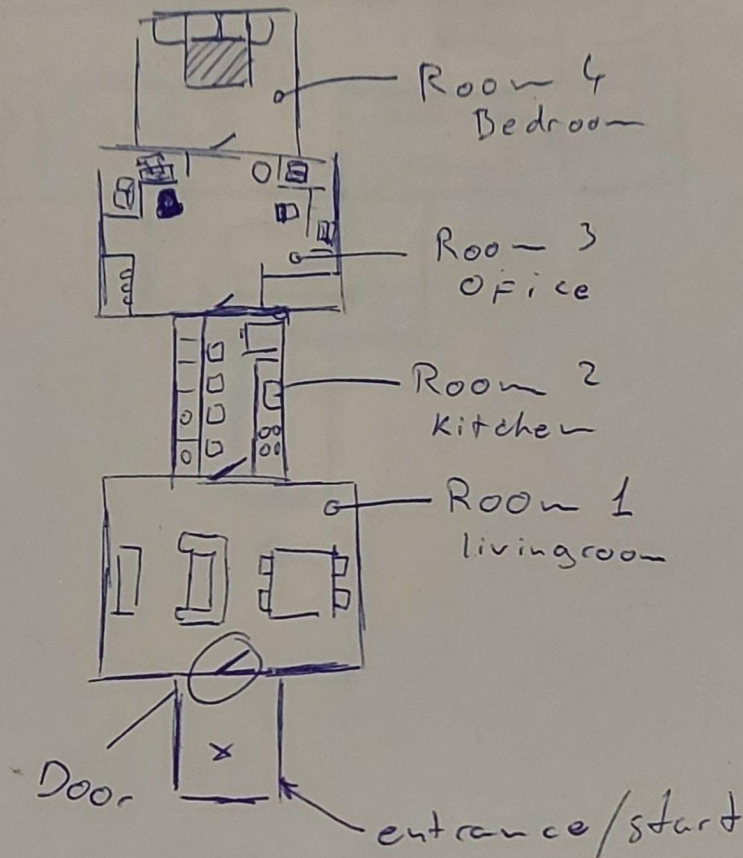 Room 4
Bedroom
Room 3
Ofice
Room 2
Kitchen
Room 1
livingroom
x
Door
entrance/start